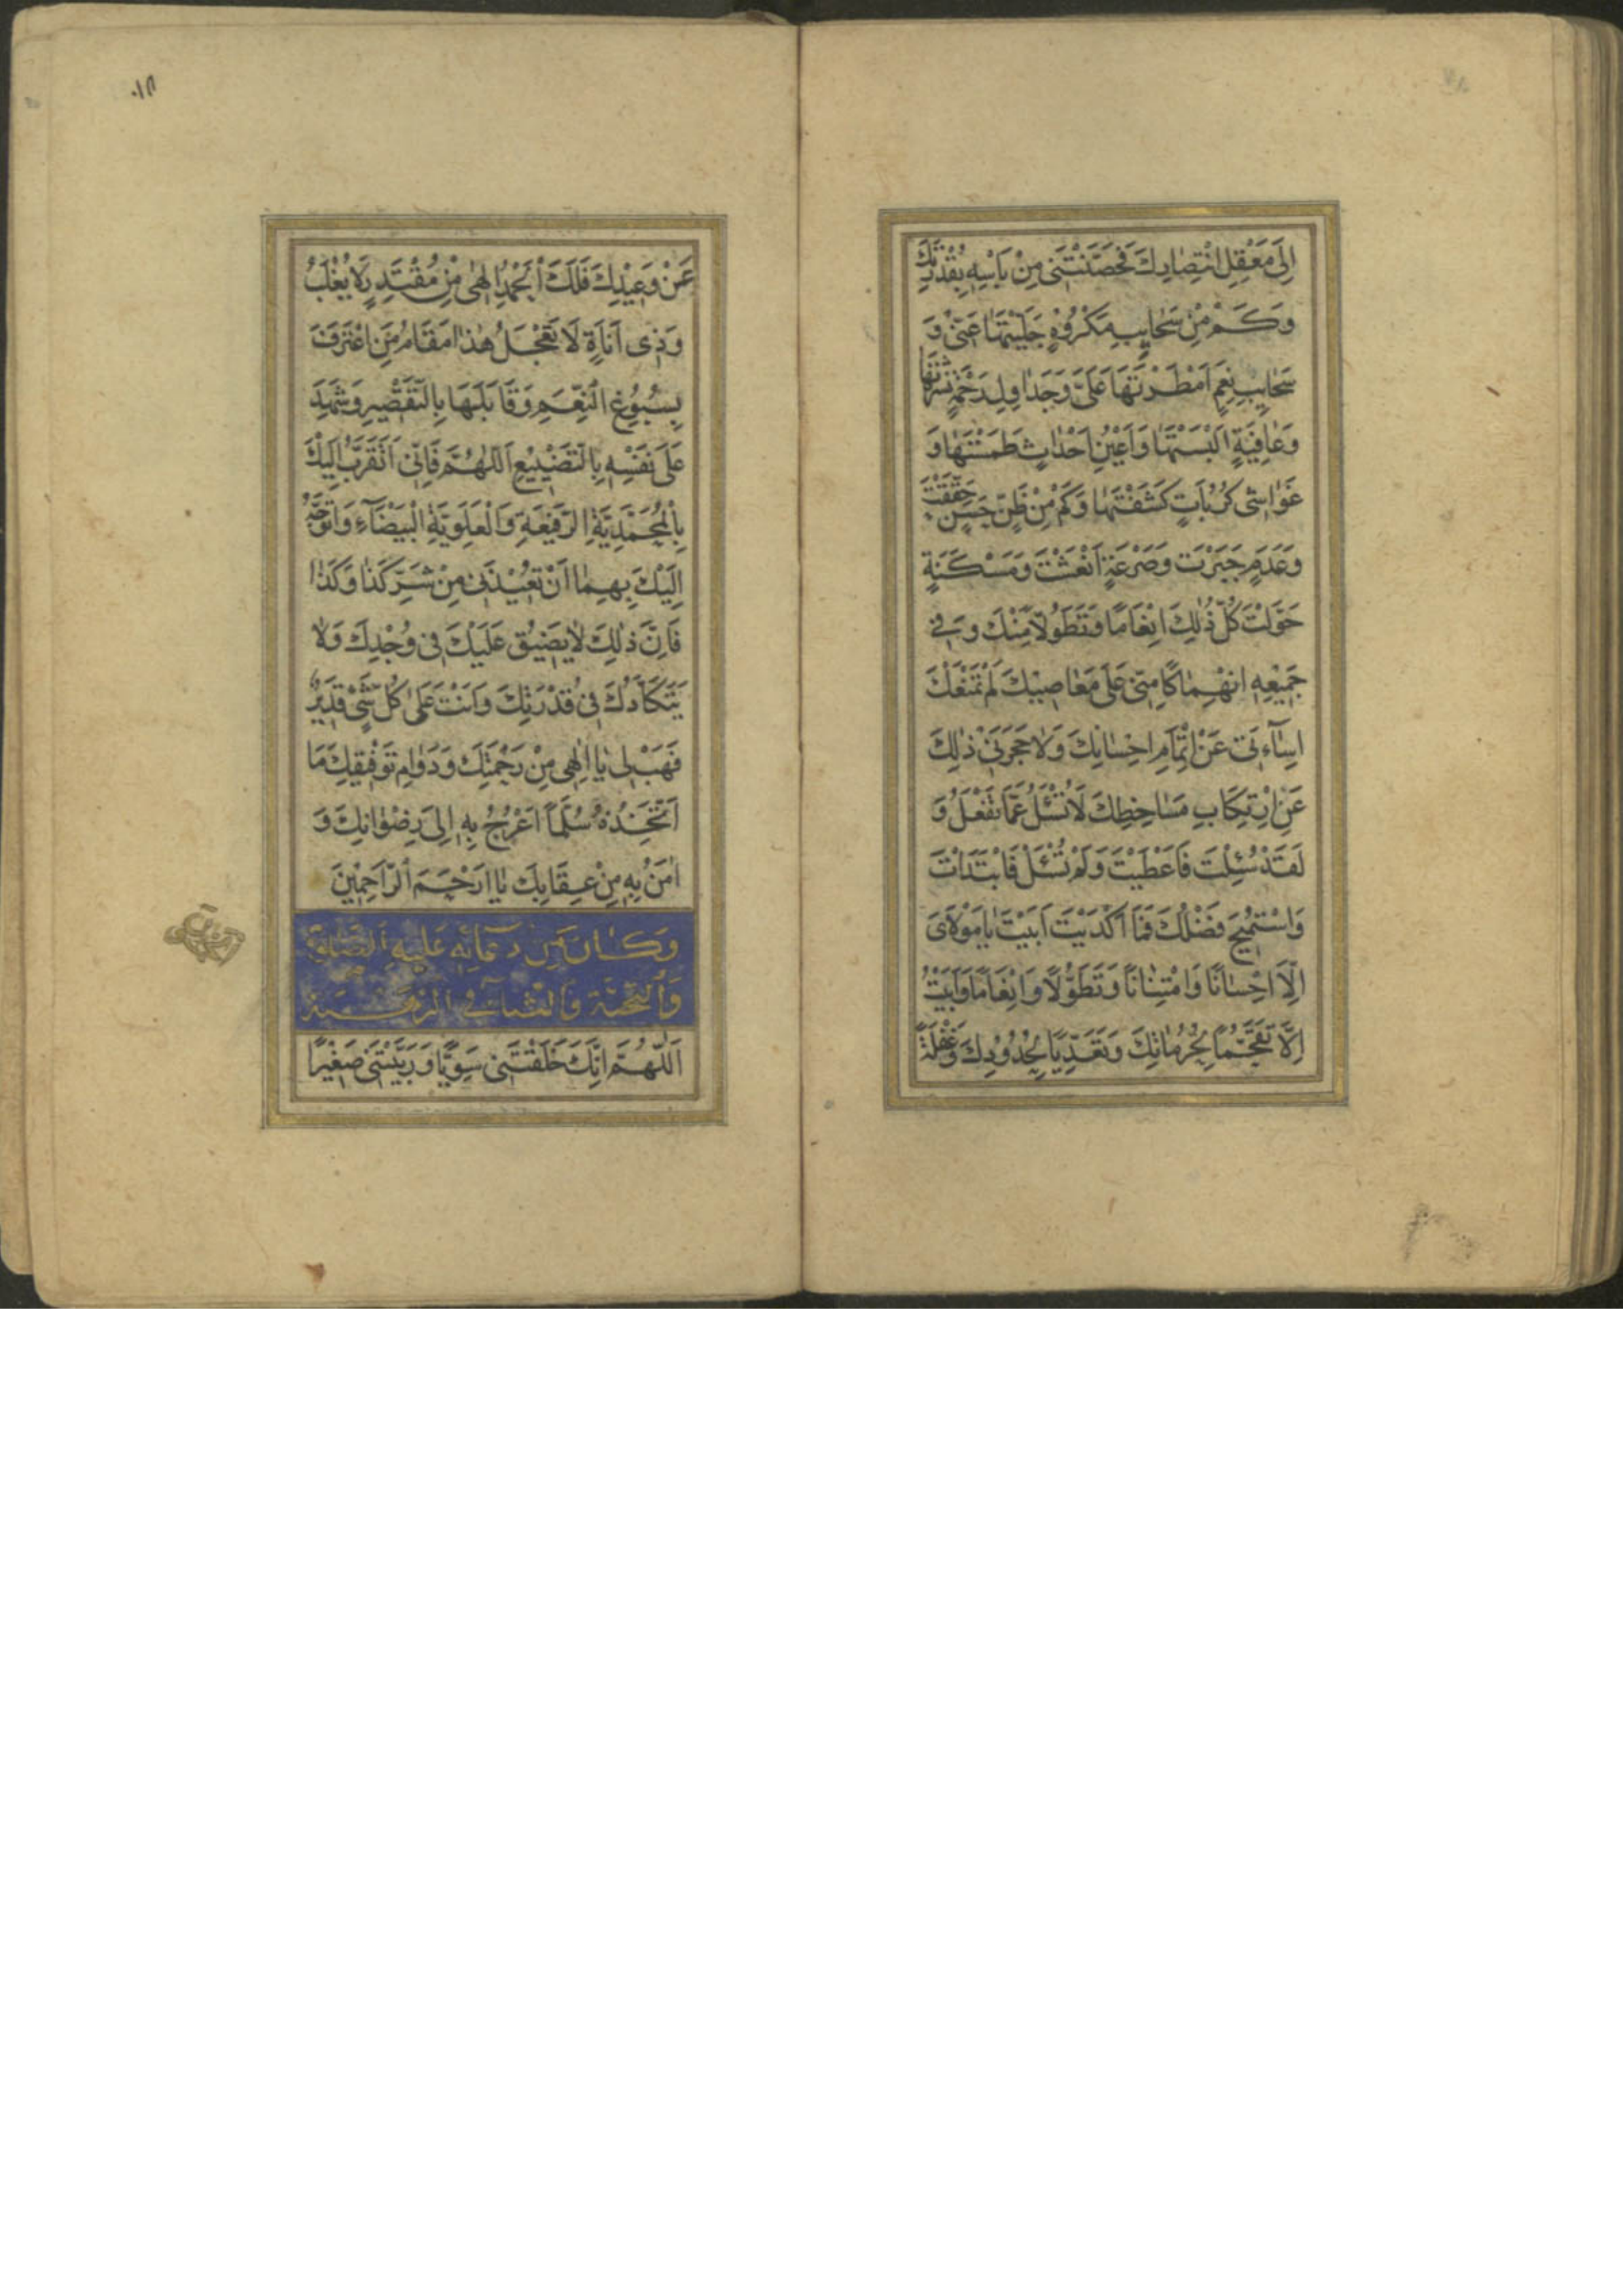 اِلَى مَعْقِلِ انْتِصَارِكَ فَحَصَّنْتَنِي مِنْ بَأْسِهِ بِقُدْرَتِكَ
وَكَمْ مِنْ سَحَايِبِ مَكْرُوهٍ جَلَّيْتَهَا عَنِّي وَ
سَحَايِبِ نِعَمٍ اَمْطَرْتَهَا عَلَيَّ وَجَدَاوِلِ رَحْمَةٍ نَشَرْتَهَا
وَعَافِيَةٍ اَلْبَسْتَهَا وَاَعْيُنِ اَحْدَاثٍ طَمَسْتَهَا وَ
غَوَاشِي كُرُبَاتٍ كَشَفْتَهَا وَكَمْ مِنْ ظَنٍّ حَسَنٍ حَقَّقْتَ
وَعَدَمٍ جَبَرْتَ وَصَرْعَةٍ اَنْعَشْتَ وَمَسْكَنَةٍ
حَوَّلْتَ كُلُّ ذٰلِكَ اِنْعَامًا وَتَطَوُّلًا مِنْكَ وَفِي
جَمِيعِهِ انْهِمَاكًا مِنِّي عَلَى مَعَاصِيكَ لَمْ تَمْنَعْكَ
اِسَاءَتِي عَنْ اِتْمَامِ اِحْسَانِكَ وَلَا حَجَرَنِي ذٰلِكَ
عَنِ ارْتِكَابِ مَسَاخِطِكَ لَا تُسْئَلُ عَمَّا تَفْعَلُ وَ
لَقَدْ سُئِلْتَ فَاَعْطَيْتَ وَلَمْ تُسْئَلْ فَابْتَدَاْتَ
وَاسْتُمِيحَ فَضْلُكَ فَمَا اَكْدَيْتَ اَبَيْتَ يَا مَوْلَايَ
اِلَّا اِحْسَانًا وَامْتِنَانًا وَتَطَوُّلًا وَاِنْعَامًا وَاَبَيْتُ
اِلَّا تَقَحُّمًا لِحُرُمَاتِكَ وَتَعَدِّيًا لِحُدُودِكَ وَغَفْلَةً
عَنْ وَعِيدِكَ فَلَكَ الْحَمْدُ اِلٰهِي مِنْ مُقْتَدِرٍ لَا يُغْلَبُ
وَذِي اَنَاةٍ لَا تَعْجَلُ هٰذَا مَقَامُ مَنِ اعْتَرَفَ
بِسُبُوغِ النِّعَمِ وَقَابَلَهَا بِالتَّقْصِيرِ وَشَهِدَ
عَلَى نَفْسِهِ بِالتَّضْيِيعِ اَللّٰهُمَّ فَاِنِّي اَتَقَرَّبُ اِلَيْكَ
بِالْمُحَمَّدِيَّةِ الرَّفِيعَةِ وَالْعَلَوِيَّةِ الْبَيْضَآءِ وَاَتَوَجَّهُ
اِلَيْكَ بِهِمَا اَنْ تُعِيذَنِي مِنْ شَرِّ كَذَا وَكَذَا
فَاِنَّ ذٰلِكَ لَا يَضِيقُ عَلَيْكَ فِي وُجْدِكَ وَلَا
يَتَكَأَّدُكَ فِي قُدْرَتِكَ وَاَنْتَ عَلَى كُلِّ شَيْءٍ قَدِيرٌ
فَهَبْ لِي يَا اِلٰهِي مِنْ رَحْمَتِكَ وَدَوَامِ تَوْفِيقِكَ مَا
اَتَّخِذُهُ سُلَّمًا اَعْرُجُ بِهِ اِلَى رِضْوَانِكَ وَ
اٰمَنُ بِهِ مِنْ عِقَابِكَ يَا اَرْحَمَ الرَّاحِمِينَ
وَكَانَ مِنْ دُعَائِهِ عَلَيْهِ الصَّلٰوةُ
وَالتَّحِيَّةُ وَالثَّنَآءُ فِي الرَّهْبَةِ
اَللّٰهُمَّ اِنَّكَ خَلَقْتَنِي سَوِيًّا وَرَبَّيْتَنِي صَغِيرًا